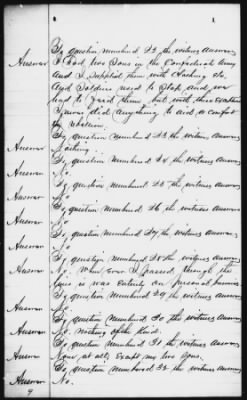 To question numbered 22 the witness answers
Answer I had two Sons in the Confederate Army
and I supplied them with Clothing &c.
And Soldiers used to Stop and we
had to feed them but with these exceptions
I never did anything to aid or comfort
the rebellion.
To question numbered 23 the witness answers
Answer Nothing.
To question numbered 24 the witness answers
Answer No.
To question numbered 25 the witness answers
Answer No
To question numbered 26 the witness answers
Answer No
To question numbered 27 the witness answers
Answer No
To question numbered 28 the witness answers
Answer No. When Ever I passed through the
lines it was entirely on personal business
To question numbered 29 the witness answers
Answer No
To question numbered 30 the witness answers
Answer No. nothing of the kind.
To question numbered 31 the witness answers
Answer None at all, Except my two Sons.
To question numbered 32 the witness answers
Answer No.
9